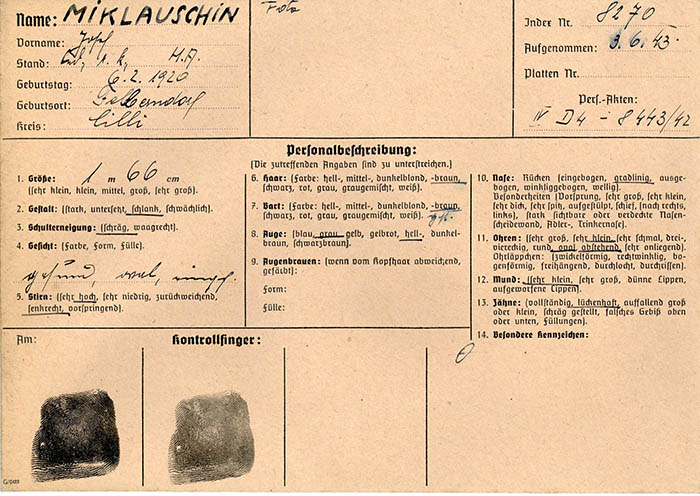 Name: MIKLAUSCHIN
Vorname: Josef
Stand: led., r. k., H.A.
Geburtstag: 6. 2. 1920
Geburtsort:
Kreis: Cilli
Foto
Index Nr. 8270
Aufgenommen: 3. 6. 43.
Platten Nr.
Pers.-Akten:
IV D4 - 8443/42
Personalbeschreibung:
(Die zutreffenden Angaben sind zu unterstreichen.)
1. Größe: 1 m 66 cm
(sehr klein, klein, mittel, groß, sehr groß).
2. Gestalt: (stark, untersetzt, schlank, schwächlich).
3. Schulterneigung: (schräg, waagrecht).
4. Gesicht: (Farbe, Form, Fülle).
gesund, oval,
5. Stirn: (sehr hoch, sehr niedrig, zurückweichend,
senkrecht, vorspringend).
6. Haar: (Farbe: hell-, mittel-, dunkelblond, -braun,
schwarz, rot, grau, graugemischt, weiß).
7. Bart: (Farbe: hell-, mittel-, dunkelblond, -braun,
schwarz, rot, grau, graugemischt, weiß).
8. Auge: (blau, grau, gelb, gelbrot, hell-, dunkel-
braun, schwarzbraun).
9. Augenbrauen: (wenn vom Kopfhaar abweichend,
gefärbt):
Form:
Fülle:
10. Nase: Rücken (eingebogen, gradlinig, ausge-
bogen, winkliggebogen, wellig).
Besonderheiten (Vorsprung, sehr groß, sehr klein,
sehr dick, sehr spitz, aufgestülpt, schief, [nach rechts,
links], stark sichtbare oder verdeckte Nasen-
scheidewand, Adler-, Trinkernase).
11. Ohren: (sehr groß, sehr klein, sehr schmal, drei-,
viereckig, rund, oval, abstehend, sehr anliegend).
Ohrläppchen: (zwickelförmig, rechtwinklig, bo-
genförmig, freihängend, durchlocht, durchrissen).
12. Mund: (sehr klein, sehr groß, dünne Lippen,
aufgeworfene Lippen).
13. Zähne: (vollständig, lückenhaft, auffallend groß
oder klein, schräg gestellt, falsches Gebiß oben
oder unten, Füllungen).
14. Besondere Kennzeichen:
Am:
Kontrollfinger: